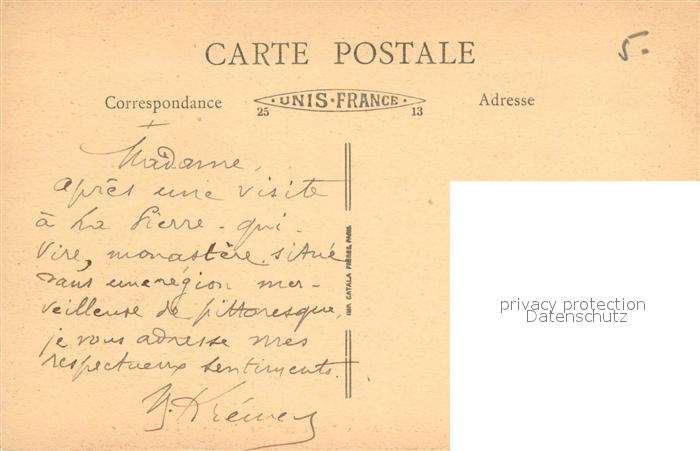 CARTE POSTALE
5.
Correspondance
UNIS-FRANCE
25
13
Adresse
Madame,
après une visite
à La Pierre-qui-
Vire, monastère situé
dans une région mer-
veilleuse de pittoresque,
je vous adresse mes
respectueux sentiments.
IMP. CATALA FRÈRES, PARIS
privacy protection
Datenschutz